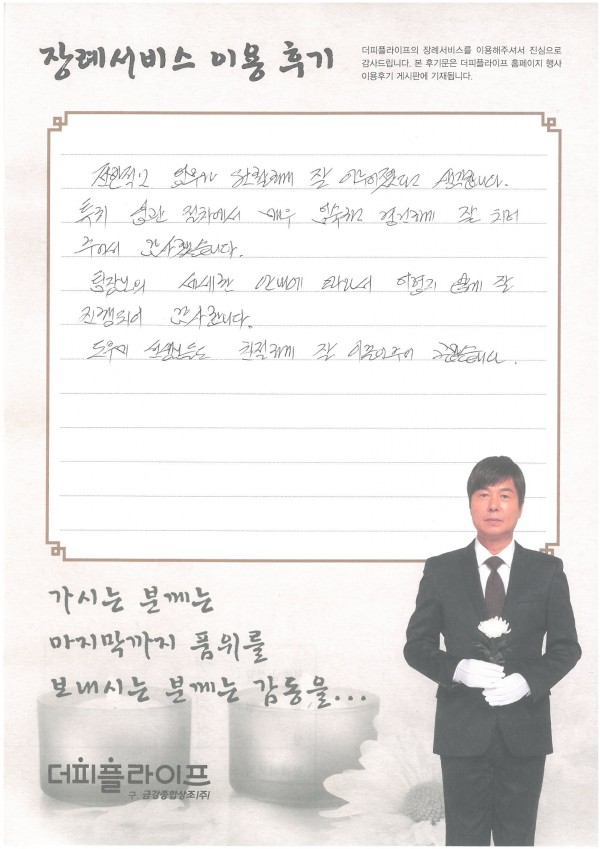 장례서비스 이용 후기
더피플라이프의 장례서비스를 이용해주셔서 진심으로
감사드립니다. 본 후기문은 더피플라이프 홈페이지 행사
이용후기 게시판에 기재됩니다.
전반적인 업무가 원활하게 잘 이루어졌다고 생각합니다.
특히 입관 절차에서 매우 엄숙하고 경건하게 잘 치러
주어서 감사했습니다.
팀장님의 세세한 안내에 따라서 어렵지 않게 잘
진행되어 감사합니다.
도우미 선생님들도 친절하게 잘 이끌어주어
가시는 분께는
마지막까지 품위를
보내시는 분께는 감동을...
더피플라이프
구. 금강종합상조(주)